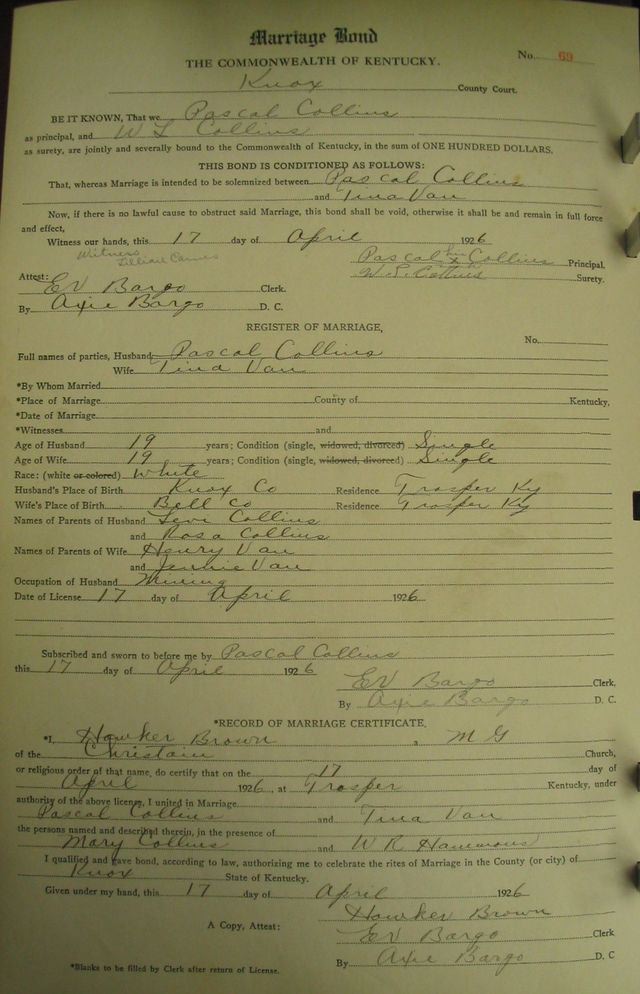 Marriage Bond
THE COMMONWEALTH OF KENTUCKY.
No. 69
Knox County Court.
BE IT KNOWN, That we Pascal Collins
as principal, and W L Collins
as surety, are jointly and severally bound to the Commonwealth of Kentucky, in the sum of ONE HUNDRED DOLLARS.
THIS BOND IS CONDITIONED AS FOLLOWS:
That, whereas Marriage is intended to be solemnized between Pascal Collins
and Tina Van
Now, if there is no lawful cause to obstruct said Marriage, this bond shall be void, otherwise it shall and remain in full force
and effect,
Witness our hands, this 17 day of April 1926
Witness
Lillian
Pascal his x Collins Principal.
Collins Surety.
Attest:
EV Bargo Clerk.
By Axie Bargo D. C.
REGISTER OF MARRIAGE,
No.
Full names of parties, Husband Pascal Collins
Wife Tina Van
*By Whom Married
*Place of Marriage County of Kentucky,
*Date of Marriage
*Witnesses and
Age of Husband 19 years; Condition (single, widowed, divorced) Single
Age of Wife 19 years; Condition (single, widowed, divorced) Single
Race: (white or colored) White
Husband's Place of Birth Knox Co Residence Trosper Ky
Wife's Place of Birth Bell Co Residence Trosper Ky
Names of Parents of Husband Levi Collins
and Rosa Collins
Names of Parents of Wife Henry Van
and Jennie Van
Occupation of Husband Mining
Date of License 17 day of April 1926
Subscribed and sworn to before me by Pascal Collins
this 17 day of April 1926
EV Bargo Clerk.
By Axie Bargo D. C.
*RECORD OF MARRIAGE CERTIFICATE.
*I, Hawker Brown a M G
of the Christain Church,
or religious order of that name, do certify that on the 17 day of
April 1926, at Trosper Kentucky, under
authority of the above license, I united in Marriage
Pascal Collins and Tina Van
the persons named and described therein, in the presence of
Mary Collins and W R Hammons
I qualified and gave bond, according to law, authorizing me to celebrate the rites of Marriage in the County (or city) of
Knox State of Kentucky.
Given under my hand, this 17 day of April 1926
Hawker Brown
A Copy, Attest: EV Bargo Clerk
By Axie Bargo D. C
*Blanks to be filled by Clerk after return of License.